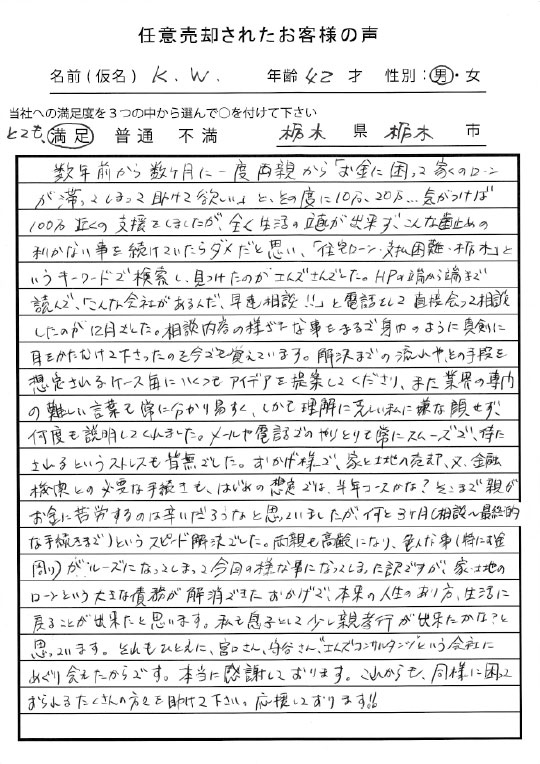 任意売却されたお客様の声
名前(仮名) K.W. 年齢 42 才 性別:男・女
当社への満足度を3つの中から選んで○を付けて下さい
とても 満足 普通 不満 栃木 県 栃木 市
数年前から数ヶ月に一度両親から「お金に困って家のローン
が滞ってしまって助けて欲しい」と、その度に10万、20万…気がつけば
100万近くの支援をしましたが、全く生活の立直が出来ず、こんな歯止めの
利かない事を続けていたらダメだと思い、「住宅ローン・支払困難・栃木」と
いうキーワードで検索し、見つけたのがエムズさんでした。HPの端から端まで
読んで、「こんな会社があるんだ、早速相談!!」と電話をして直接会って相談
したのが12月でした。相談内容の様々な事をまるで身内のように真剣に
耳をかたむけて下さったのを今でも覚えています。解決までの流れや、その手段を
想定されるケース毎にいくつもアイデアを提案してくださり、また業界の専門
の難しい言葉も常に分かり易すく、しかも理解に乏しい私に嫌な顔せず、
何度も説明してくれました。メールや電話でのやりとりも常にスムーズで、待た
されるというストレスも皆無でした。おかげ様で、家と土地の売却、又、金融
機関との必要な手続きも、はじめの想定では、半年コースかな?そこまで親が
お金に苦労するのは辛いだろうなと思っていましたが、何と3ヶ月(相談〜最終的
な手続きまで)というスピード解決でした。両親も高齢になり、色んな事(特にお金
周り)がルーズになってしまって今回の様な事になってしまった訳ですが、家・土地の
ローンという大きな債務が解消できたおかげで、本来の人生のあり方、生活に
戻ることが出来たと思います。私も息子として少し親孝行が出来たかな?と
思っています。それもひとえに、宮口さん、守谷さん、"エムズコンサルタンツ"という会社に
めぐり会えたからです。本当に感謝しております。これからも、同様に困って
おられるたくさんの方々を助けて下さい。応援しております!!